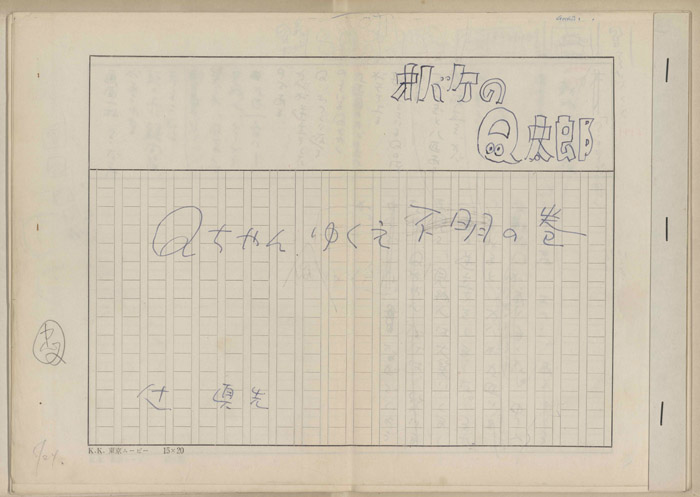 オバケの
Q太郎
Qちゃんゆくえ不明の巻
辻 真先
K.K. 東京ムービー 15×20